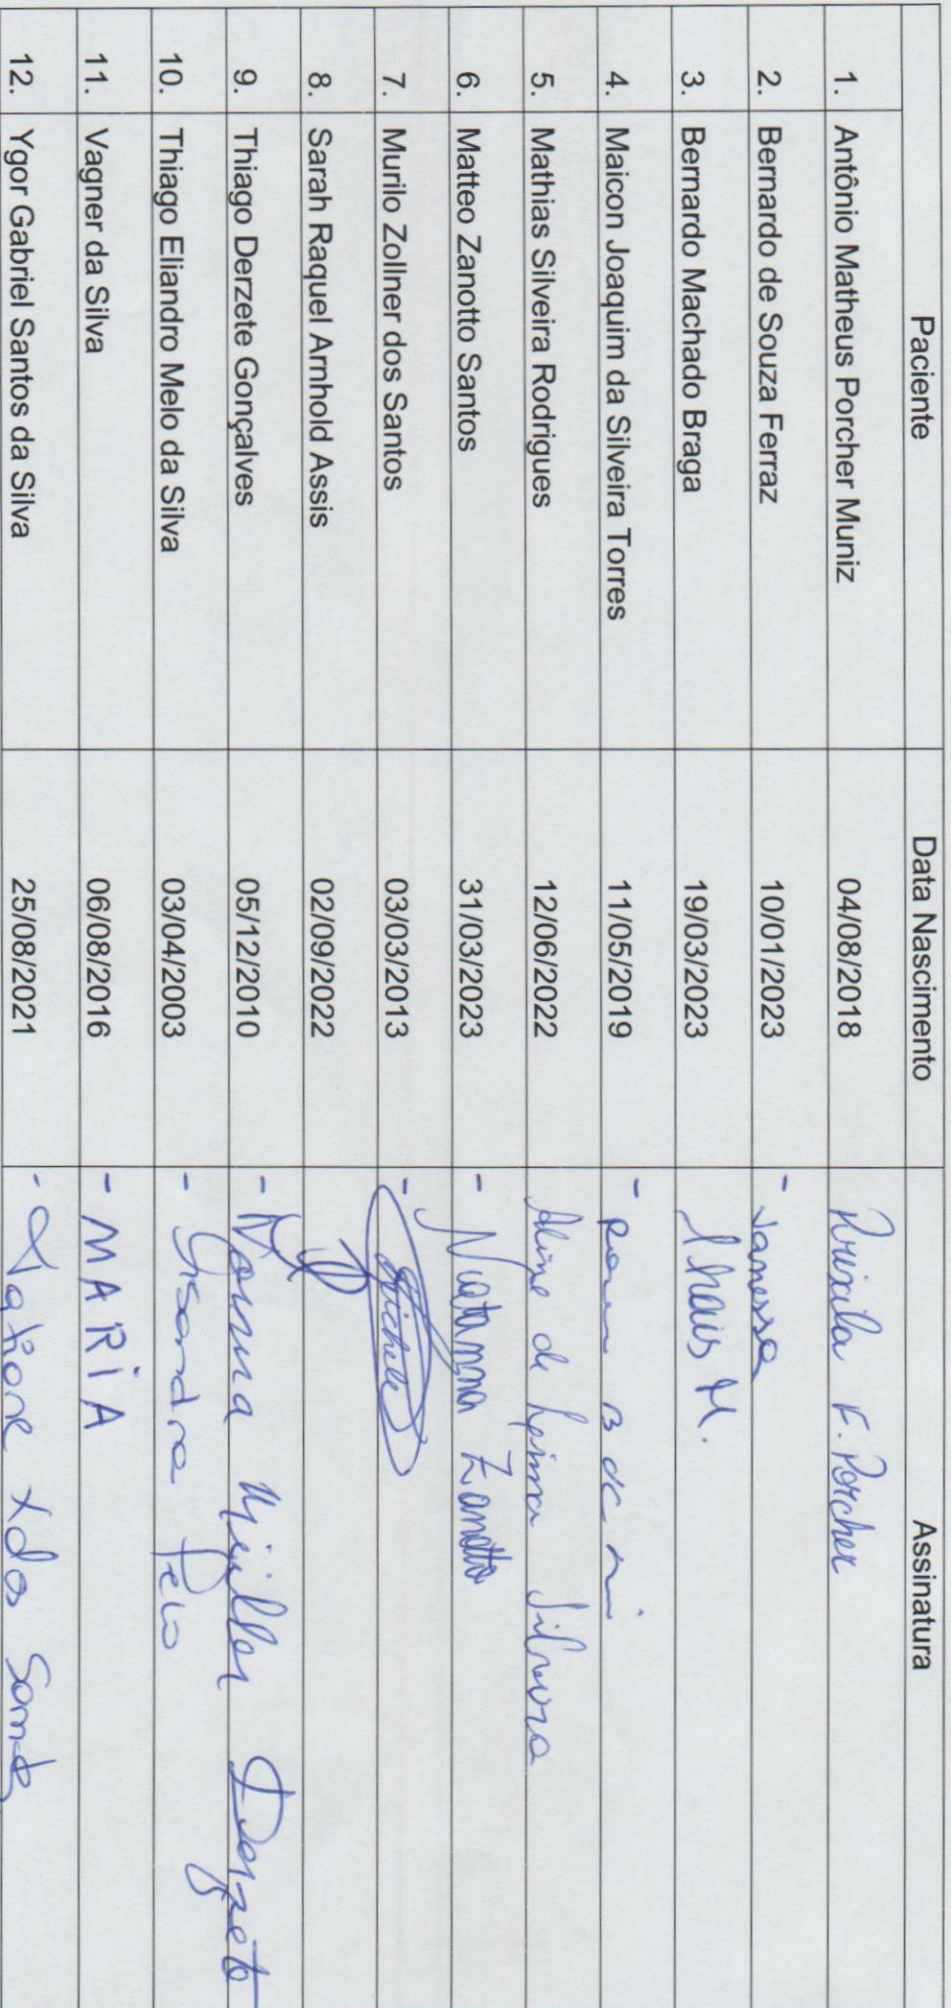 Paciente Data Nascimento Assinatura
1. Antônio Matheus Porcher Muniz 04/08/2018 Priscila F. Porcher
2. Bernardo de Souza Ferraz 10/01/2023 - Vanessa
3. Bernardo Machado Braga 19/03/2023 Thais M.
4. Maicon Joaquim da Silveira Torres 11/05/2019 -
5. Mathias Silveira Rodrigues 12/06/2022 Aline de Silveira
6. Matteo Zanotto Santos 31/03/2023 - Zanotto
7. Murilo Zollner dos Santos 03/03/2013 - Michele
8. Sarah Raquel Arnhold Assis 02/09/2022
9. Thiago Derzete Gonçalves 05/12/2010 -
10. Thiago Eliandro Melo da Silva 03/04/2003 -
11. Vagner da Silva 06/08/2016 - MARiA
12. Ygor Gabriel Santos da Silva 25/08/2021 -